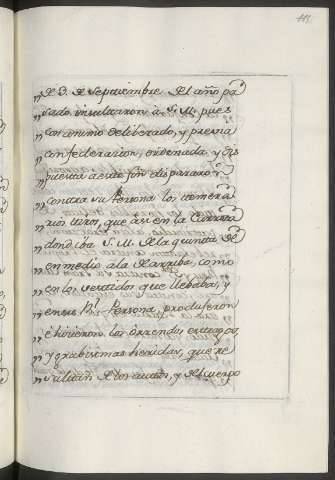 de 3. de Septiembre del año pa
sado insultaron à S. M. pues
con animo deliberado, y previa
confederacion, ordenada y dis
puesta à este fin dispararon
contra su Persona los temera
rios tiros, que asi en la Carroza
donde iba S. M. de la quinta de
en medio a la de arriba, como
en los vestidos que llebaba, y
en su Rl. Persona, produjeron
é hicieron los horrendos estragos
y grabisimas heridas, que re
sultan de los autos, y del cuerpo